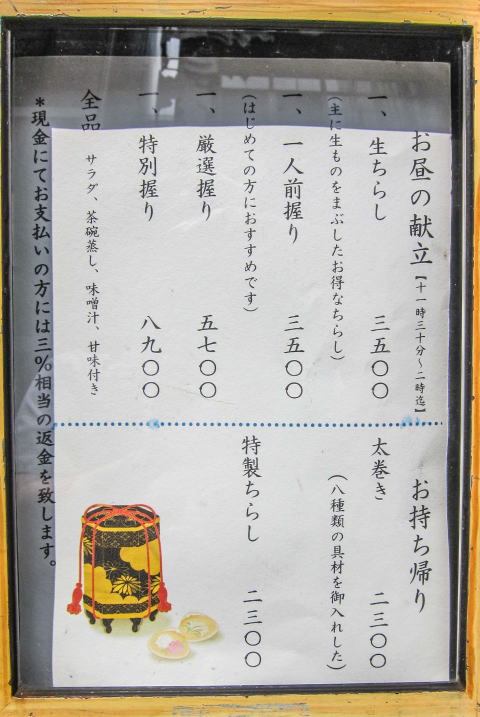 お昼の献立【十一時三十分～二時迄】
一、生ちらし 三五〇〇
(主に生ものをまぶしたお得なちらし)
一、一人前握り 三五〇〇
(はじめての方におすすめです)
一、厳選握り 五七〇〇
一、特別握り 八九〇〇
全品 サラダ、茶碗蒸し、味噌汁、甘味付き
＊現金にてお支払いの方には三%相当の返金を致します。
お持ち帰り
太巻き 二三〇〇
(八種類の具材を御入れした)
特製ちらし 二三〇〇